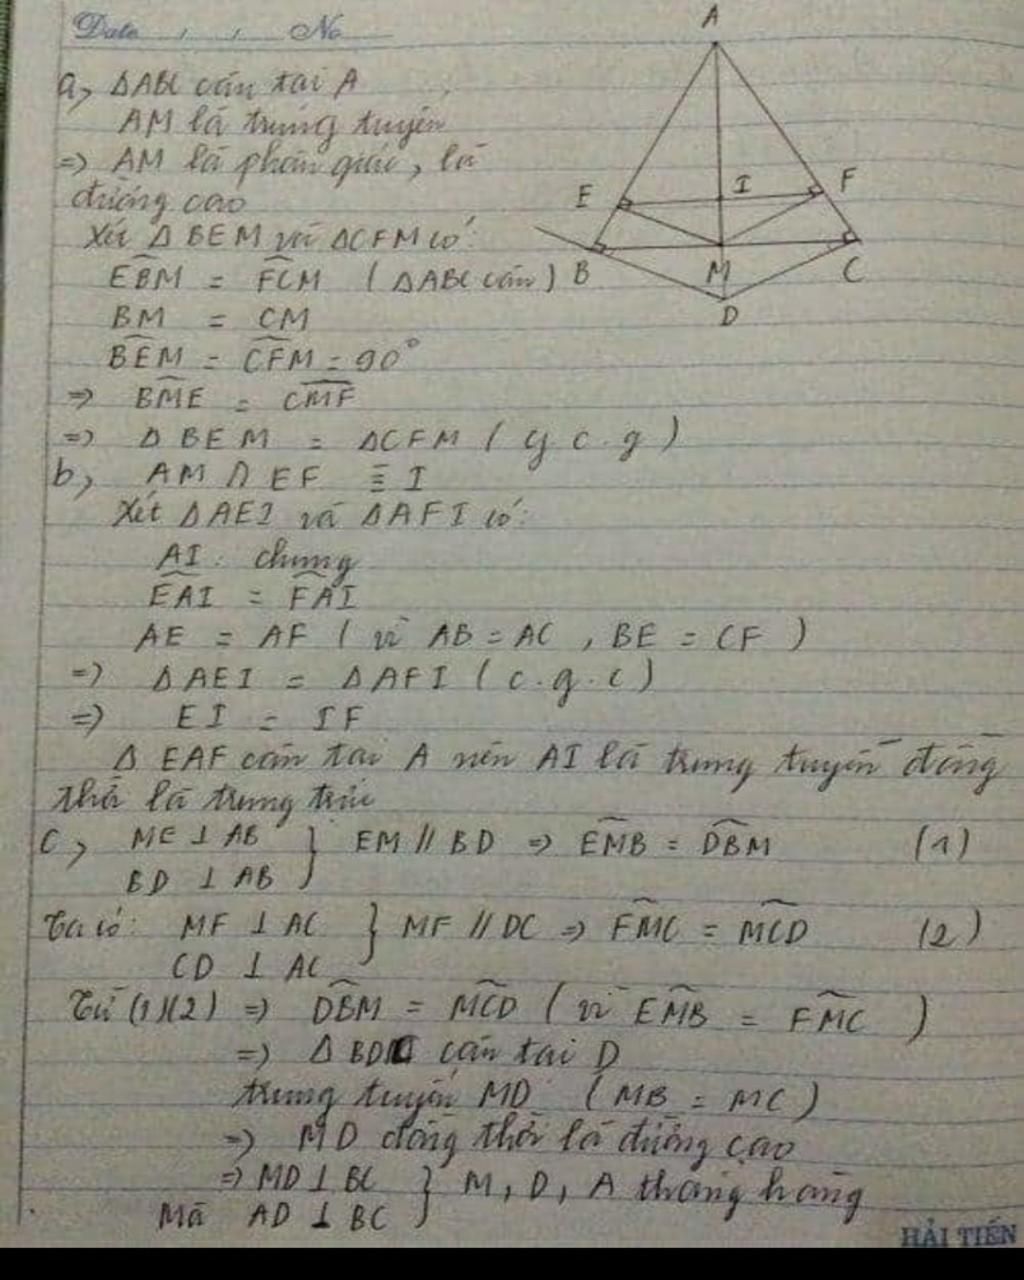 Date , , No
A
a, ΔABC cân tại A
AM là trung tuyến
=> AM là phân giác, là
đường cao
E I F
B M C
D
Xét Δ BEM và ΔCFM có:
EBM = FCM (ΔABC cân)
BM = CM
BEM = CFM = 90°
=> BME = CMF
=> Δ BEM = ΔCFM ( g c . g )
b, AM ∩ EF ≡ I
Xét ΔAEI và ΔAFI có:
AI : chung
EAI = FAI
AE = AF ( vì AB = AC , BE = CF )
=> ΔAEI = ΔAFI ( c . g . c )
=> EI = IF
Δ EAF cân tại A nên AI là trung tuyến đồng
thời là trung trực
c, ME ⊥ AB } EM // BD => EMB = DBM (1)
BD ⊥ AB
Ta có: MF ⊥ AC } MF // DC => FMC = MCD (2)
CD ⊥ AC
Từ (1)(2) => DBM = MCD ( vì EMB = FMC )
=> Δ BDC cân tại D
trung tuyến MD ( MB = MC )
=> MD đồng thời là đường cao
=> MD ⊥ BC } M, D, A thẳng hàng
Mà AD ⊥ BC
HẢI TIẾN